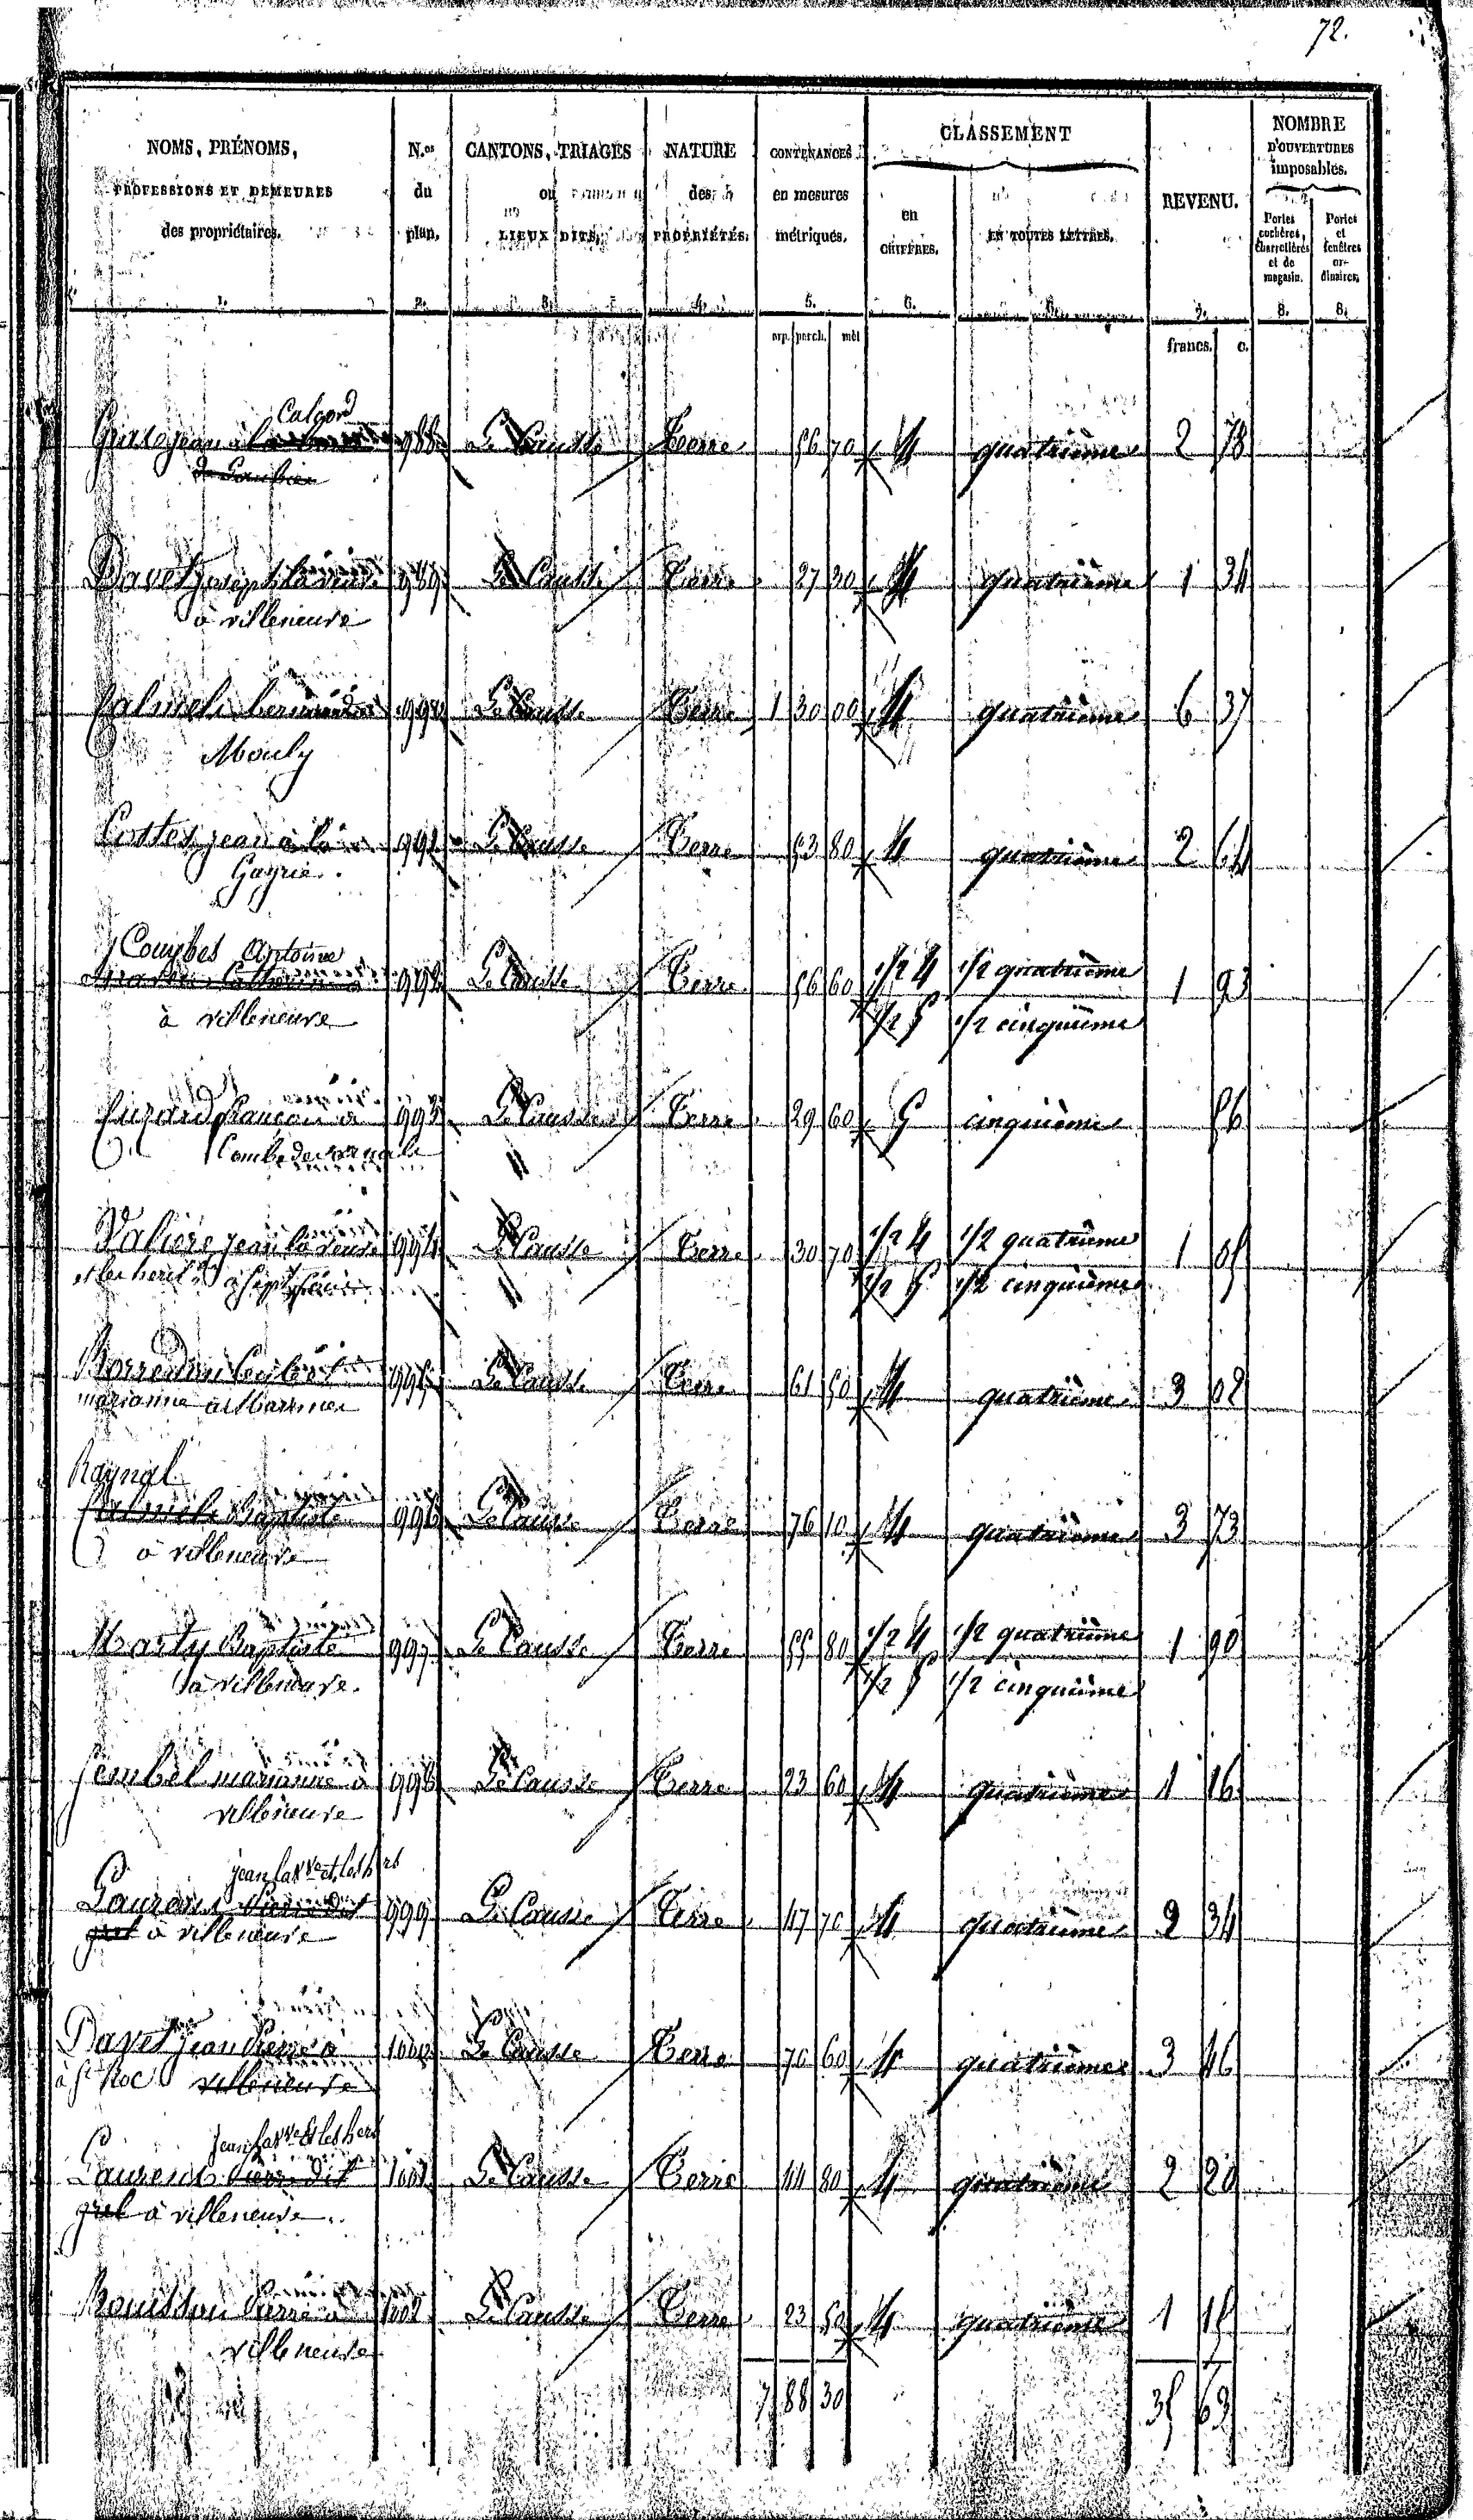 72.
NOMS, PRÉNOMS,
PROFESSIONS ET DEMEURES
des propriétaires.
N.os
du
plan.
CANTONS, TRIAGES
ou
LIEUX DITS.
NATURE
des
PROPRIÉTÉS.
CONTENANCES
en mesures
métriques.
CLASSEMENT
en
CHIFFRES.
EN TOUTES LETTRES.
REVENU.
NOMBRE
D'OUVERTURES
imposables.
Portes
cochères,
charretières
et de
magasin.
Portes
et
fenêtres
or-
dinaires.
1. 2. 3. 4. 5. 6. 7. 8. 8.
arp. perch. mèt francs. c.
Calgord
jean à 988 Le Causse Terre 56 70 4 quatrième 2 78
989 Le Causse Terre 27 30 4 quatrième 1 34
à villeneuve
990 Le Causse Terre 1 30 00 4 quatrième 6 37
Mouly
Costes jean à la 991 Le Causse Terre 53 80 4 quatrième 2 64
Gayrie
Combes Antoine
992 Le Causse Terre 56 60 1/2 4 1/2 quatrième 1 93
à villeneuve 1/2 5 1/2 cinquième
françois à 993 Le Causse Terre 29 60 5 cinquième 56
Combe de
Valière jean la veuve 994 Le Causse Terre 30 70 1/2 4 1/2 quatrième 1 05
et les herit. à 1/2 5 1/2 cinquième
995 Le Causse Terre 61 50 4 quatrième 3 02
marianne à
Raynal
Baptiste 996 Le Causse Terre 76 10 4 quatrième 3 73
à villeneuve
Marty Baptiste 997 Le Causse Terre 55 80 1/2 4 1/2 quatrième 1 90
à villeneuve. 1/2 5 1/2 cinquième
marianne à 998 Le Causse Terre 23 60 4 quatrième 1 16
villeneuve
jean la Vve et les hers
Laurens Pierre dit 999 Le Causse Terre 47 70 4 quatrième 2 34
gril à villeneuve
jean Pierre à 1000 Le Causse Terre 70 60 4 quatrième 3 46
à St Roc villeneuve
jean la Vve et les hers
Laurens Pierre dit 1001 Le Causse Terre 44 80 4 quatrième 2 20
gril à villeneuve
Pierre à 1002 Le Causse Terre 23 50 4 quatrième 1 15
villeneuve
7 88 30 35 63